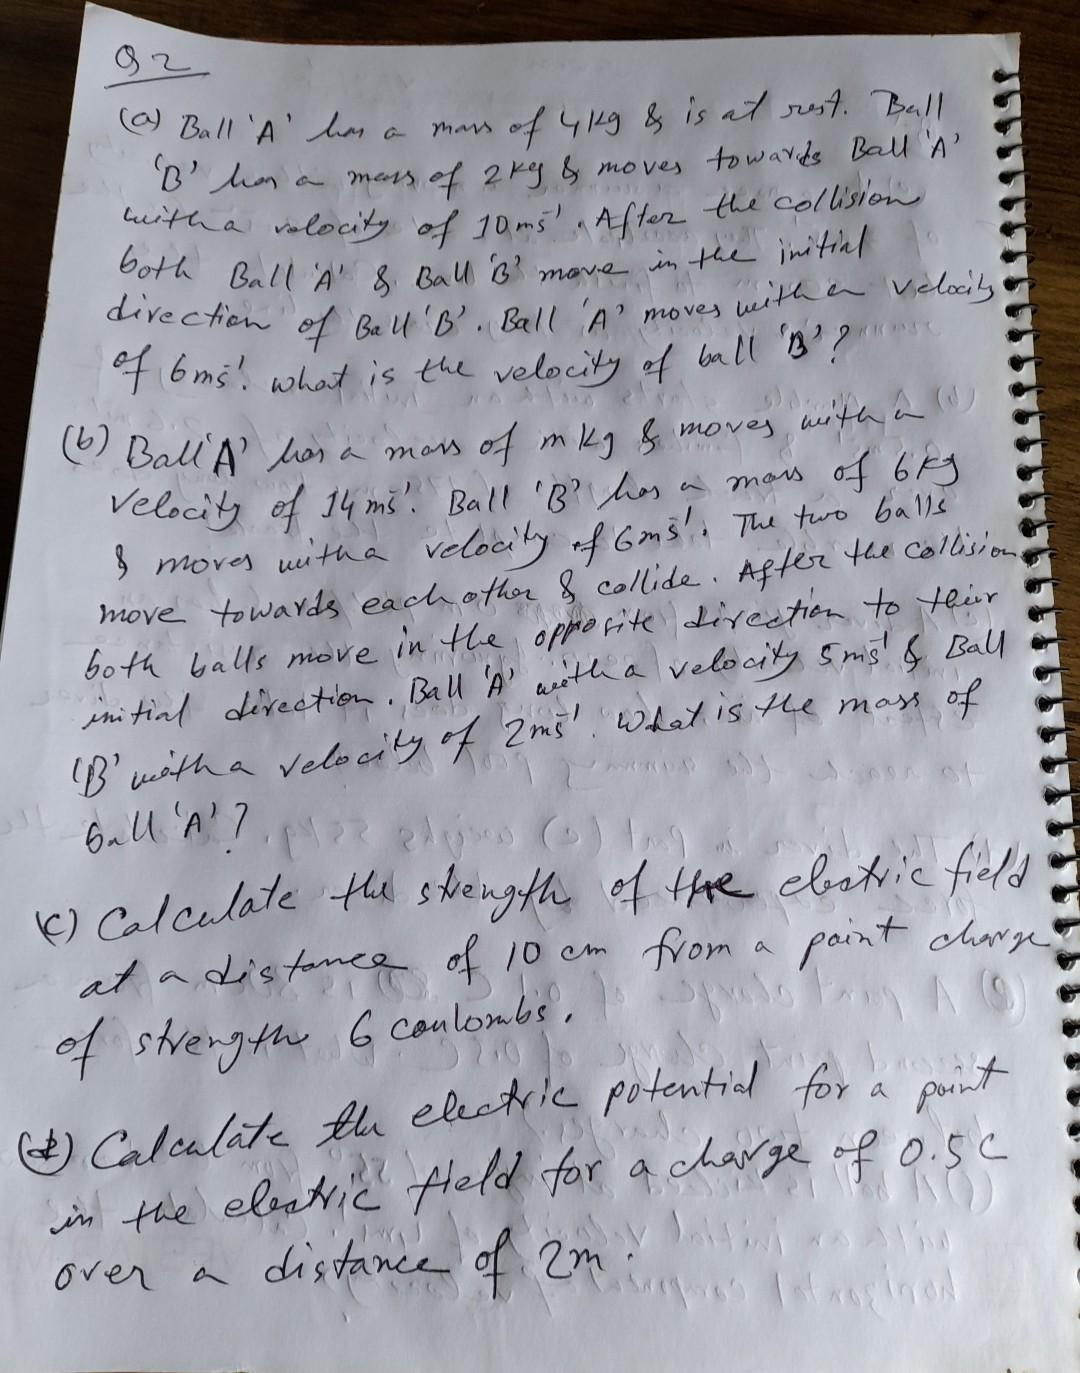 Q2
(a) Ball 'A' has a mass of 4kg & is at rest. Ball
'B' has a mass of 2kg & moves towards Ball 'A'
with a velocity of 10ms⁻¹. After the collision
both Ball 'A' & Ball 'B' move in the initial
direction of Ball 'B'. Ball 'A' moves with a velocity
of 6ms⁻¹. what is the velocity of ball 'B'?
(b) Ball 'A' has a mass of m kg & moves with a
velocity of 14ms⁻¹. Ball 'B' has a mass of 6kg
& moves with a velocity of 6ms⁻¹. The two balls
move towards each other & collide. After the collision
both balls move in the opposite direction to their
initial direction. Ball 'A' with a velocity 5ms⁻¹ & Ball
'B' with a velocity of 2ms⁻¹. What is the mass of
ball 'A'?
(c) Calculate the strength of the electric field
at a distance of 10 cm from a point charge
of strength 6 coulombs.
(d) Calculate the electric potential for a point
in the electric field for a charge of 0.5C
over a distance of 2m.